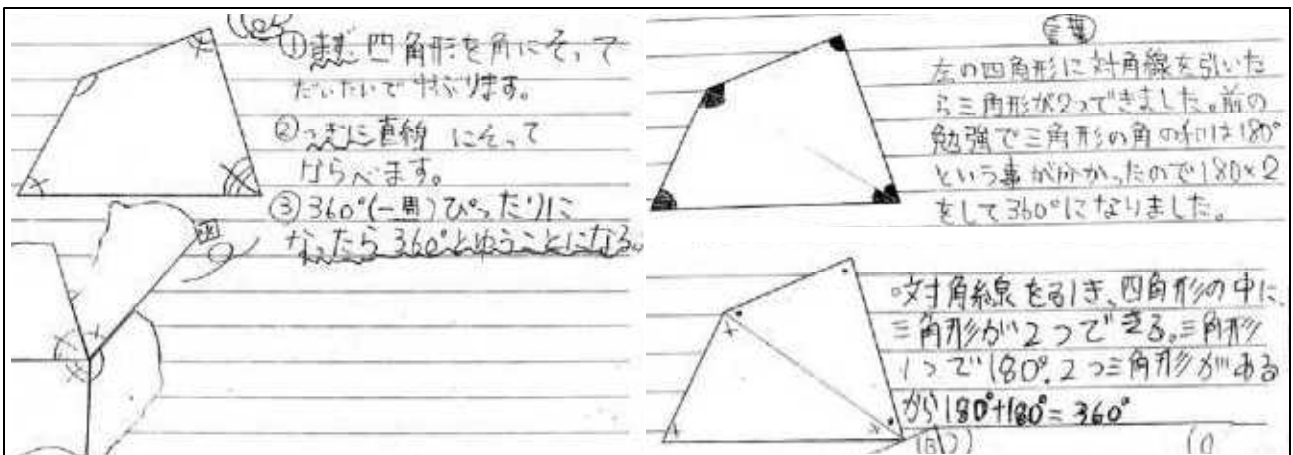 ①まず四角形を角にそって
だいたいで やぶります。
②つぎに直線 にそって
ならべます。
③360°(一周)ぴったりに
なったら360°とゆうことになる。
図
言葉
左の四角形に対角線を引いた
ら三角形が2つできました。前の
勉強で三角形の角の和は180°
という事が分かったので180×2
をして360°になりました。
○対角線を引き、四角形の中に、
三角形が2つできる。三角形
1つで180°。2つ三角形がある
から180°+180°=360°